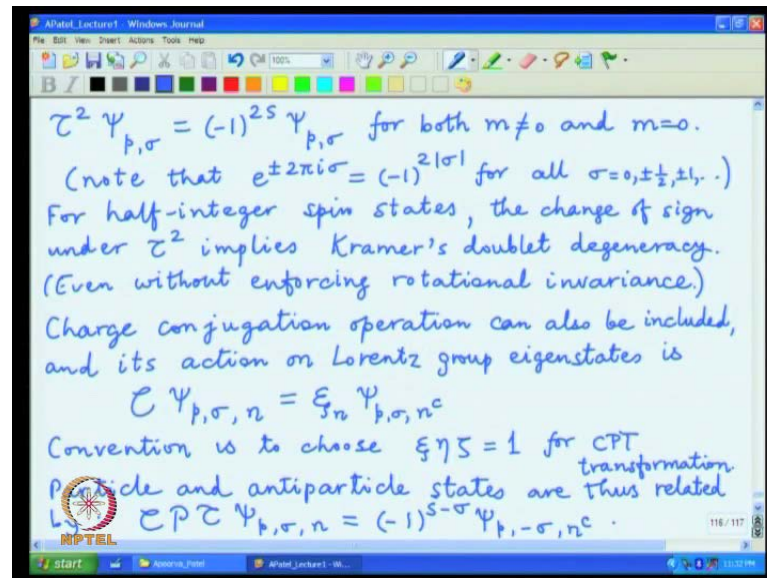 APatel_Lecture1 - Windows Journal
File Edit View Insert Actions Tools Help
100%
B I
τ² Ψ_{p,σ} = (-1)^{2S} Ψ_{p,σ} for both m≠0 and m=0.
(note that e^{±2πiσ} = (-1)^{2|σ|} for all σ=0,±½,±1,..)
For half-integer spin states, the change of sign
under τ² implies Kramer's doublet degeneracy.
(Even without enforcing rotational invariance.)
Charge conjugation operation can also be included,
and its action on Lorentz group eigenstates is
C Ψ_{p,σ,n} = ξ_n Ψ_{p,σ,n^c}
Convention is to choose ξηζ = 1 for CPT
transformation.
Particle and antiparticle states are thus related
by CPτ Ψ_{p,σ,n} = (-1)^{S-σ} Ψ_{p,-σ,n^c} .
116 / 117
NPTEL
start
Apoorva_Patel
APatel_Lecture1 - Wi...
11:32 PM